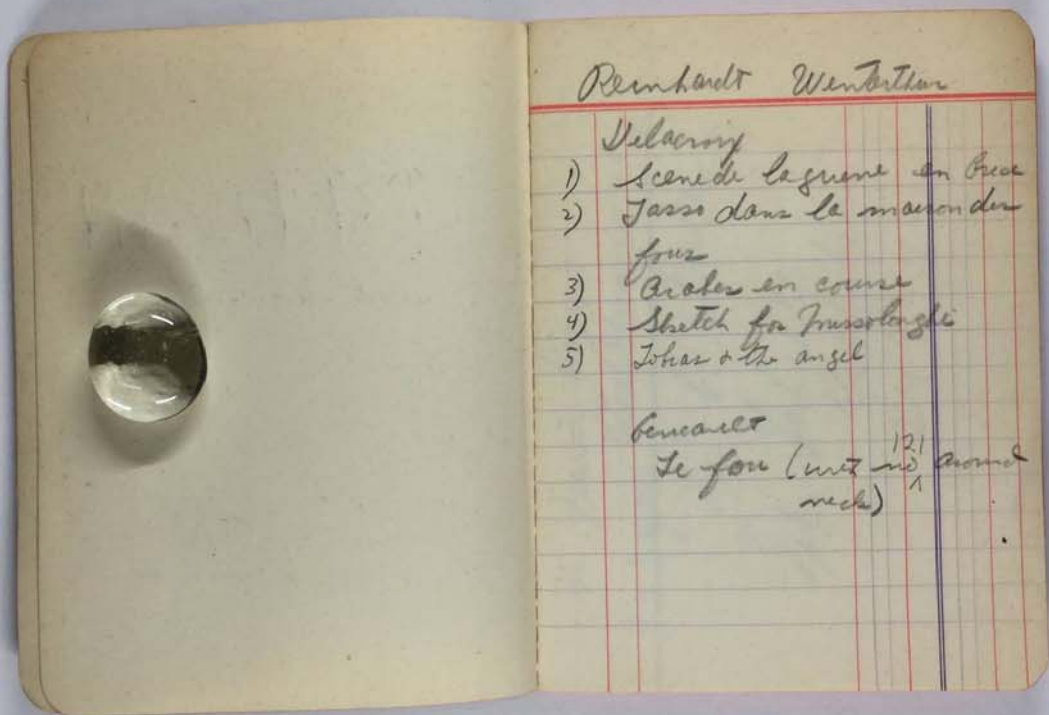 Reinhardt Winterthur
Delacroix
1) Scene de la guerre en Grece
2) Tasso dans la maison des
fous
3) Arabes en course
4) Sketch for Missolonghi
5) Tobias & the angel
Gericault
Le fou (with no 121 around
neck)